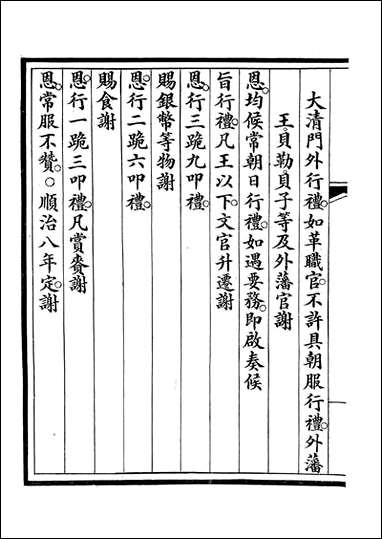 大清門外行禮。如革職官。不許具朝服行禮。外藩
王貝勒貝子等及外藩官謝
恩。均候常朝日行禮。如遇要務。即啟奏候
旨行禮。凡王以下。文官升遷謝
恩。行三跪九叩禮。
賜銀幣等物謝
恩。行二跪六叩禮。
賜食謝
恩。行一跪三叩禮。凡賞賚謝
恩。常服不贊。○順治八年定。謝